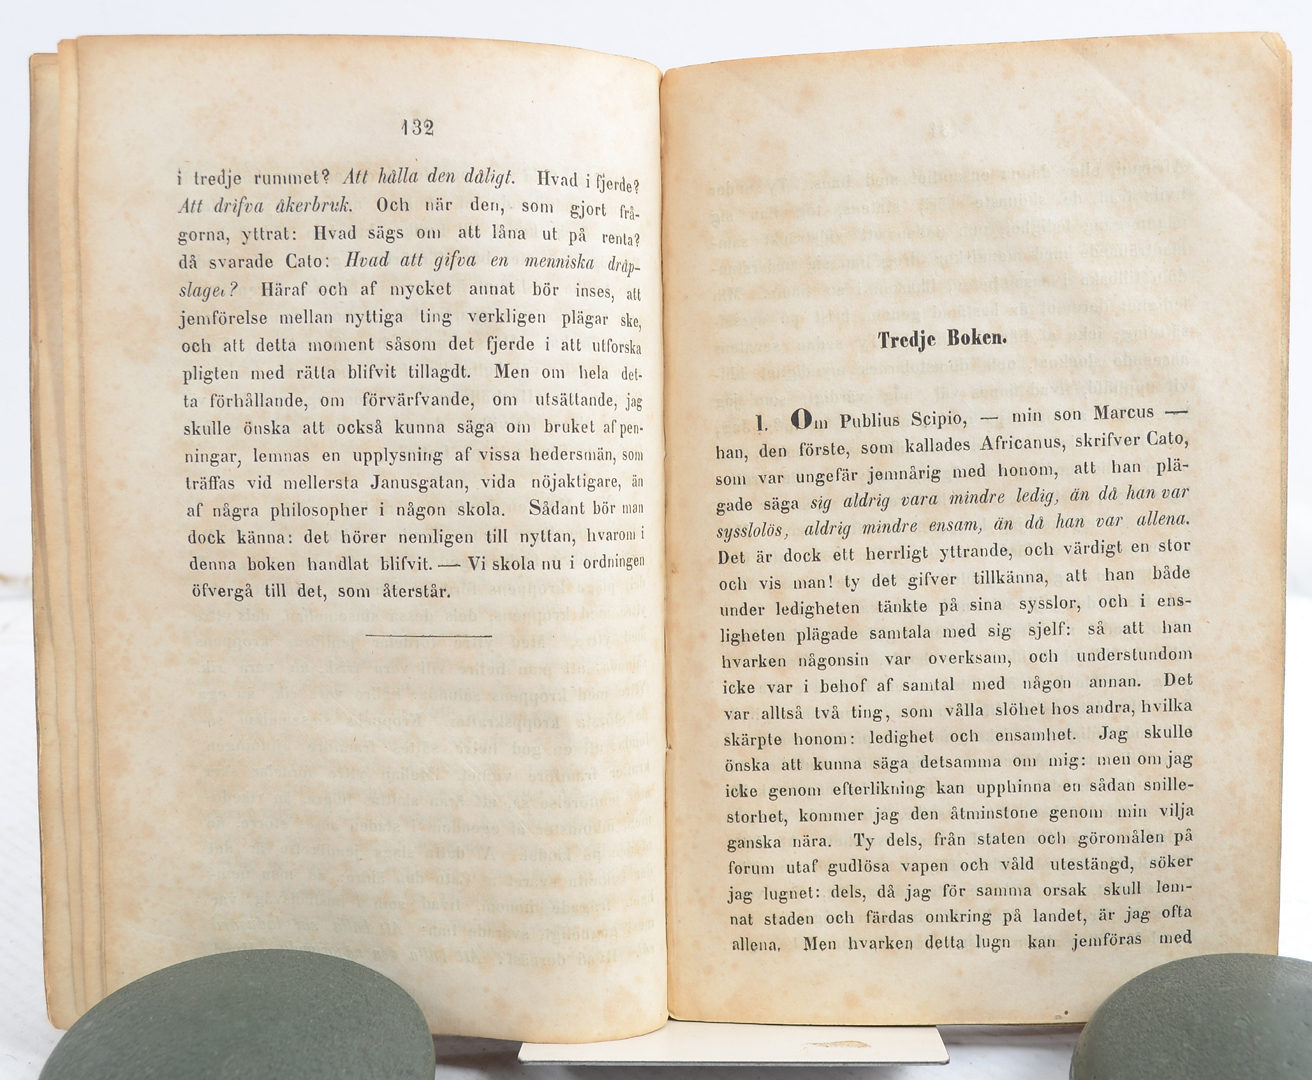 132
i tredje rummet? Att hålla den dåligt. Hvad i fjerde?
Att drifva åkerbruk. Och när den, som gjort frå-
gorna, yttrat: Hvad sägs om att låna ut på renta?
då svarade Cato: Hvad att gifva en menniska dråp-
slaget? Häraf och af mycket annat bör inses, att
jemförelse mellan nyttiga ting verkligen plägar ske,
och att detta moment såsom det fjerde i att utforska
pligten med rätta blifvit tillagdt. Men om hela det-
ta förhållande, om förvärfvande, om utsättande, jag
skulle önska att också kunna säga om bruket af pen-
ningar, lemnas en upplysning af vissa hedersmän, som
träffas vid mellersta Janusgatan, vida nöjaktigare, än
af några philosopher i någon skola. Sådant bör man
dock känna: det hörer nemligen till nyttan, hvarom i
denna boken handlat blifvit. — Vi skola nu i ordningen
öfvergå till det, som återstår.
Tredje Boken.
1. Om Publius Scipio, — min son Marcus —
han, den förste, som kallades Africanus, skrifver Cato,
som var ungefär jemnårig med honom, att han plä-
gade säga sig aldrig vara mindre ledig, än då han var
sysslolös, aldrig mindre ensam, än då han var allena.
Det är dock ett herrligt yttrande, och värdigt en stor
och vis man! ty det gifver tillkänna, att han både
under ledigheten tänkte på sina sysslor, och i ens-
ligheten plägade samtala med sig sjelf: så att han
hvarken någonsin var overksam, och understundom
icke var i behof af samtal med någon annan. Det
var alltså två ting, som vålla slöhet hos andra, hvilka
skärpte honom: ledighet och ensamhet. Jag skulle
önska att kunna säga detsamma om mig: men om jag
icke genom efterlikning kan upphinna en sådan snille-
storhet, kommer jag den åtminstone genom min vilja
ganska nära. Ty dels, från staten och göromålen på
forum utaf gudlösa vapen och våld utestängd, söker
jag lugnet: dels, då jag för samma orsak skull lem-
nat staden och färdas omkring på landet, är jag ofta
allena. Men hvarken detta lugn kan jemföras med